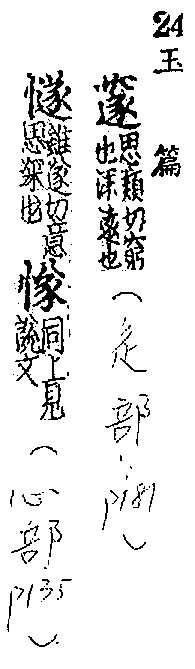 24
玉篇
邃思類切窮也深遠也(辵部：P181)
㥞雖遂切意思深也㒸同上見說文(心部：P135)